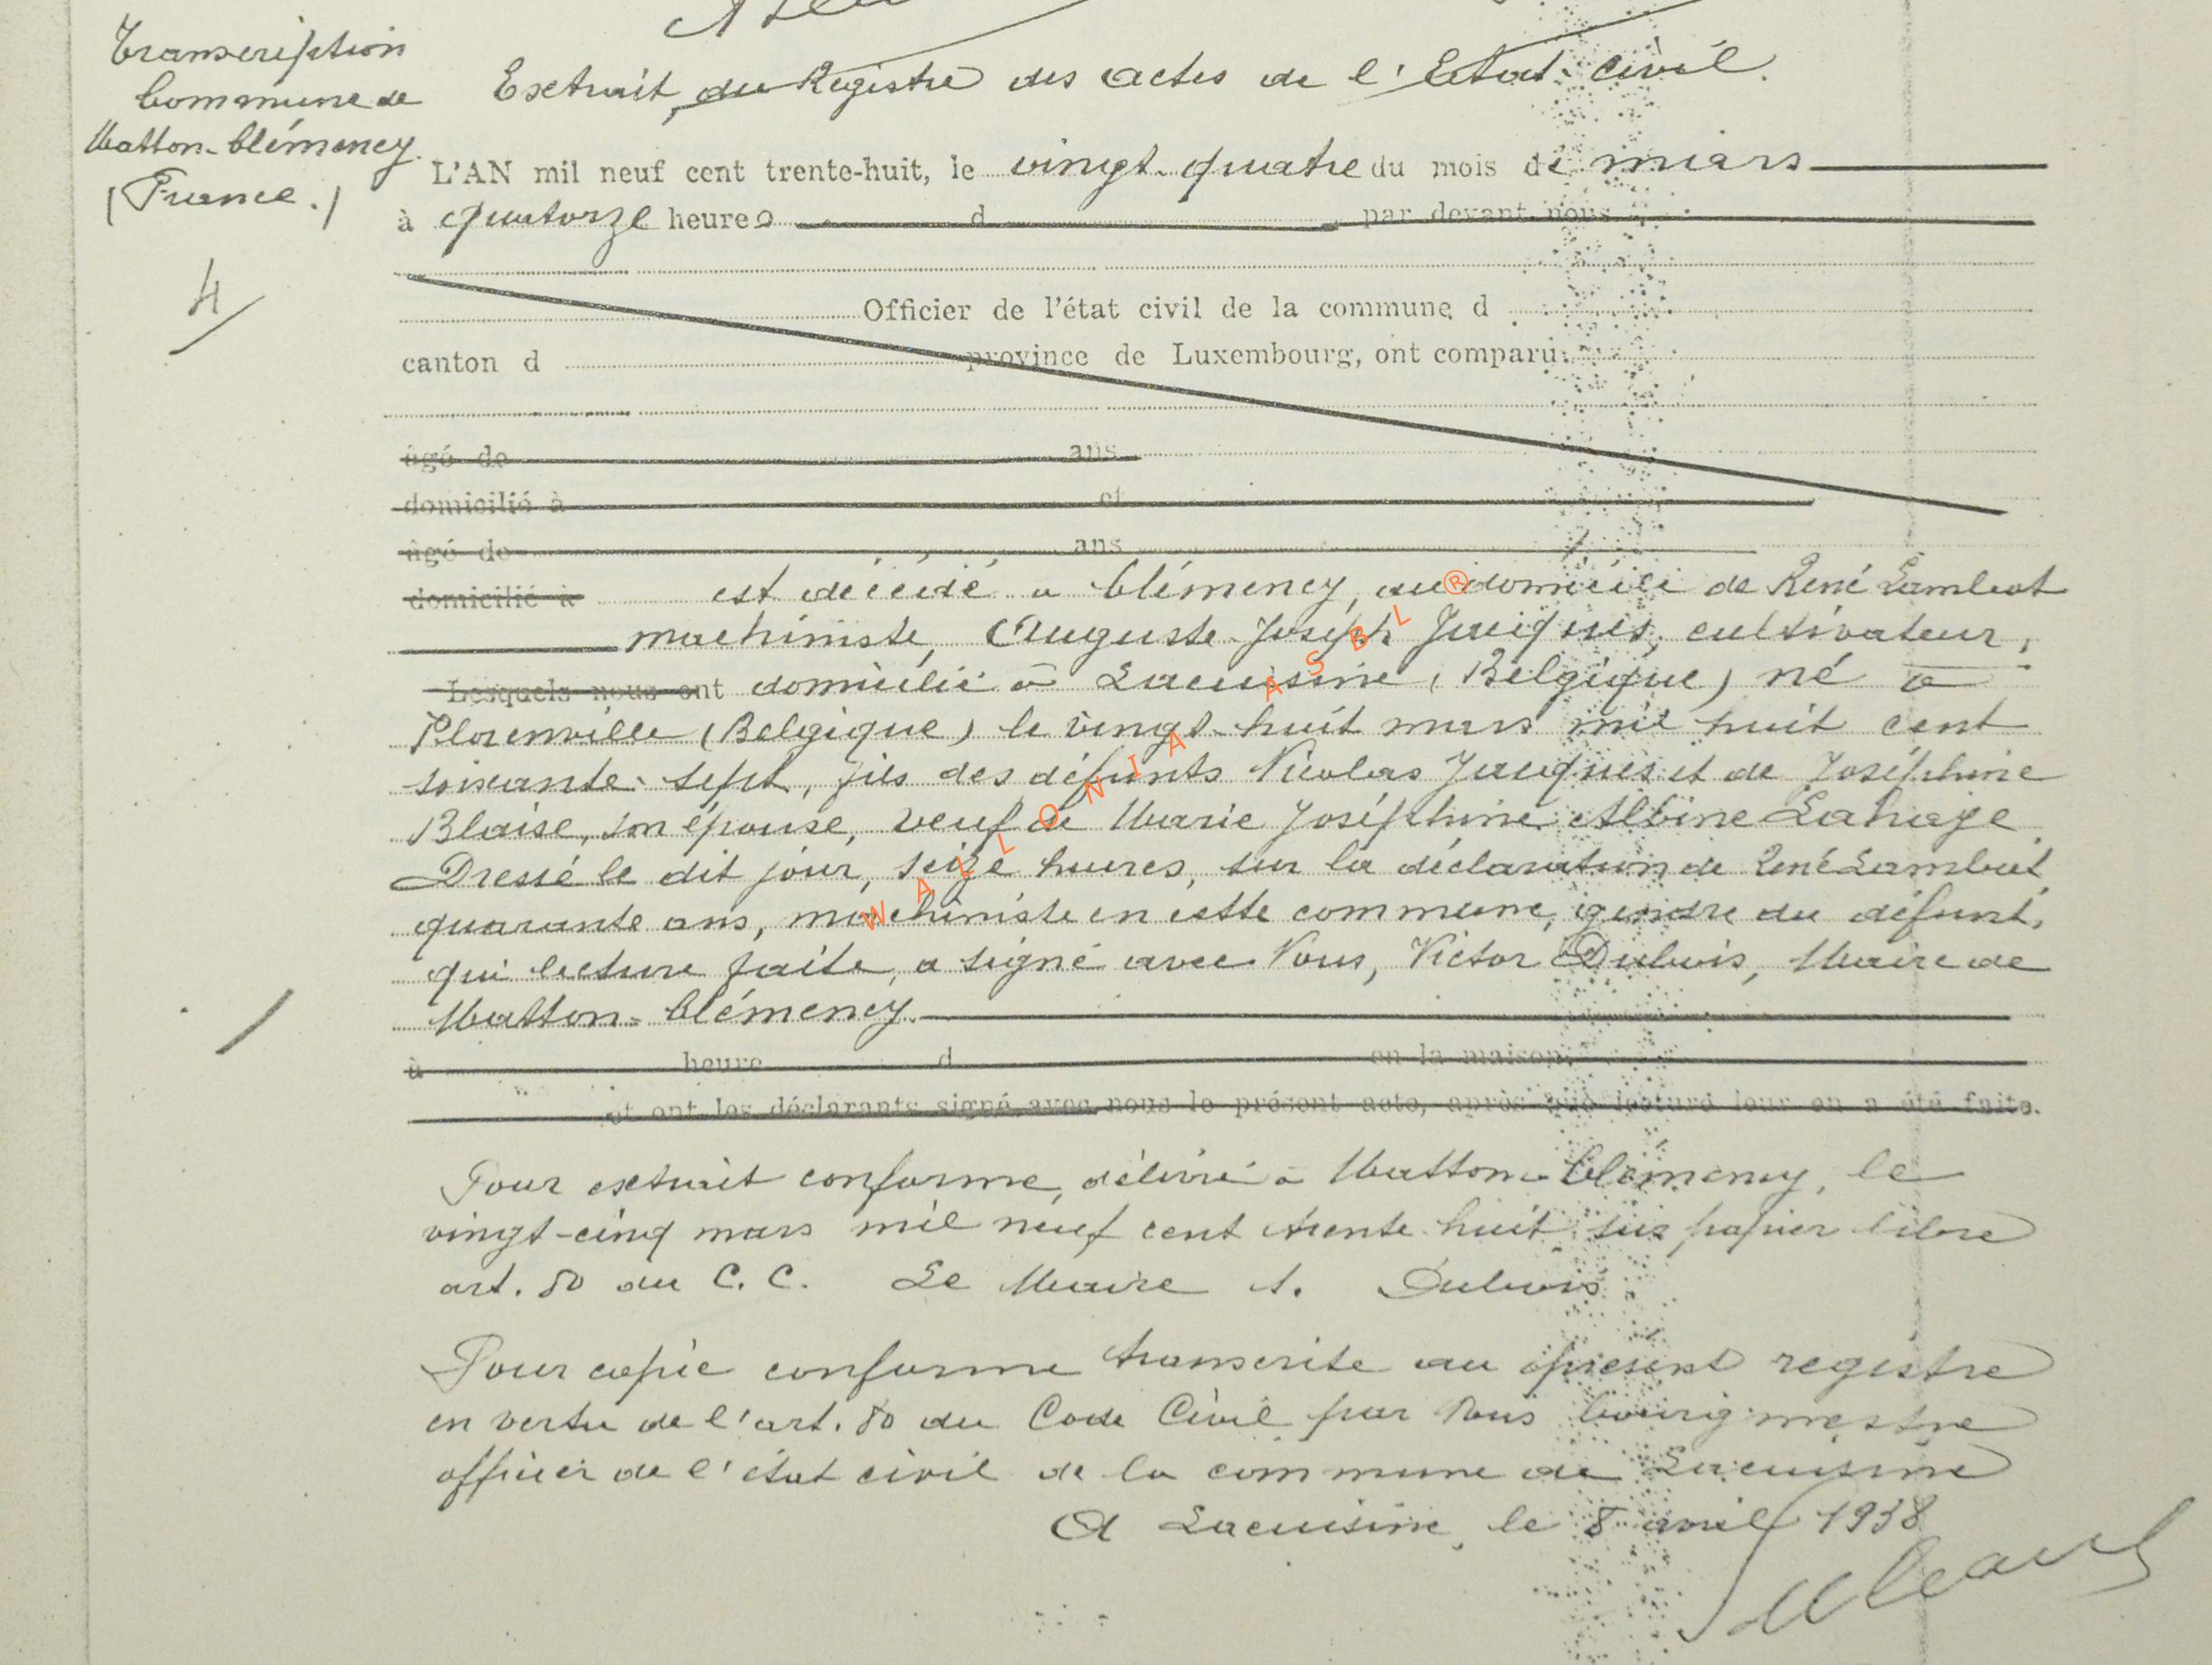 Transcription
Commune de
Matton-Clémency.
(France.)
4
Extrait du Registre des actes de l'Etat-civil.
L'AN mil neuf cent trente-huit, le vingt-quatre du mois de mars
à quatorze heures d par devant nous
Officier de l'état civil de la commune d
canton d province de Luxembourg, ont comparu
âgé de ans
domicilié à et
âgé de ans
domicilié à est décédé à Clémency, au domicile de René Lambert
machiniste, Auguste-Joseph Jacques, cultivateur,
Lesquels nous ont domicilié à Lacuisine (Belgique) né à
Florenville (Belgique) le vingt-huit mars mil huit cent
soixante-sept, fils des défunts Nicolas Jacques et de Joséphine
Blaise, son épouse, veuf de Marie Joséphine Albine Lahaye
Dressé le dit jour, seize heures, sur la déclaration de René Lambert
quarante ans, machiniste en cette commune, gendre du défunt,
qui lecture faite, a signé avec Nous, Victor Dubois, Maire de
Matton-Clémency.
à heure d en la maison
et ont les déclarants signé avec nous le présent acte, après que lecture leur en a été faite.
Pour extrait conforme, délivré à Matton-Clémency, le
vingt-cinq mars mil neuf cent trente huit sur papier libre
art. 80 du C. C. Le Maire s. Dubois
Pour copie conforme transcrite au présent registre
en vertu de l'art. 80 du Code Civil par Nous bourgmestre
officier de l'état civil de la commune de Lacuisine
A Lacuisine, le 8 avril 1938
WALLONIA ASBL ®